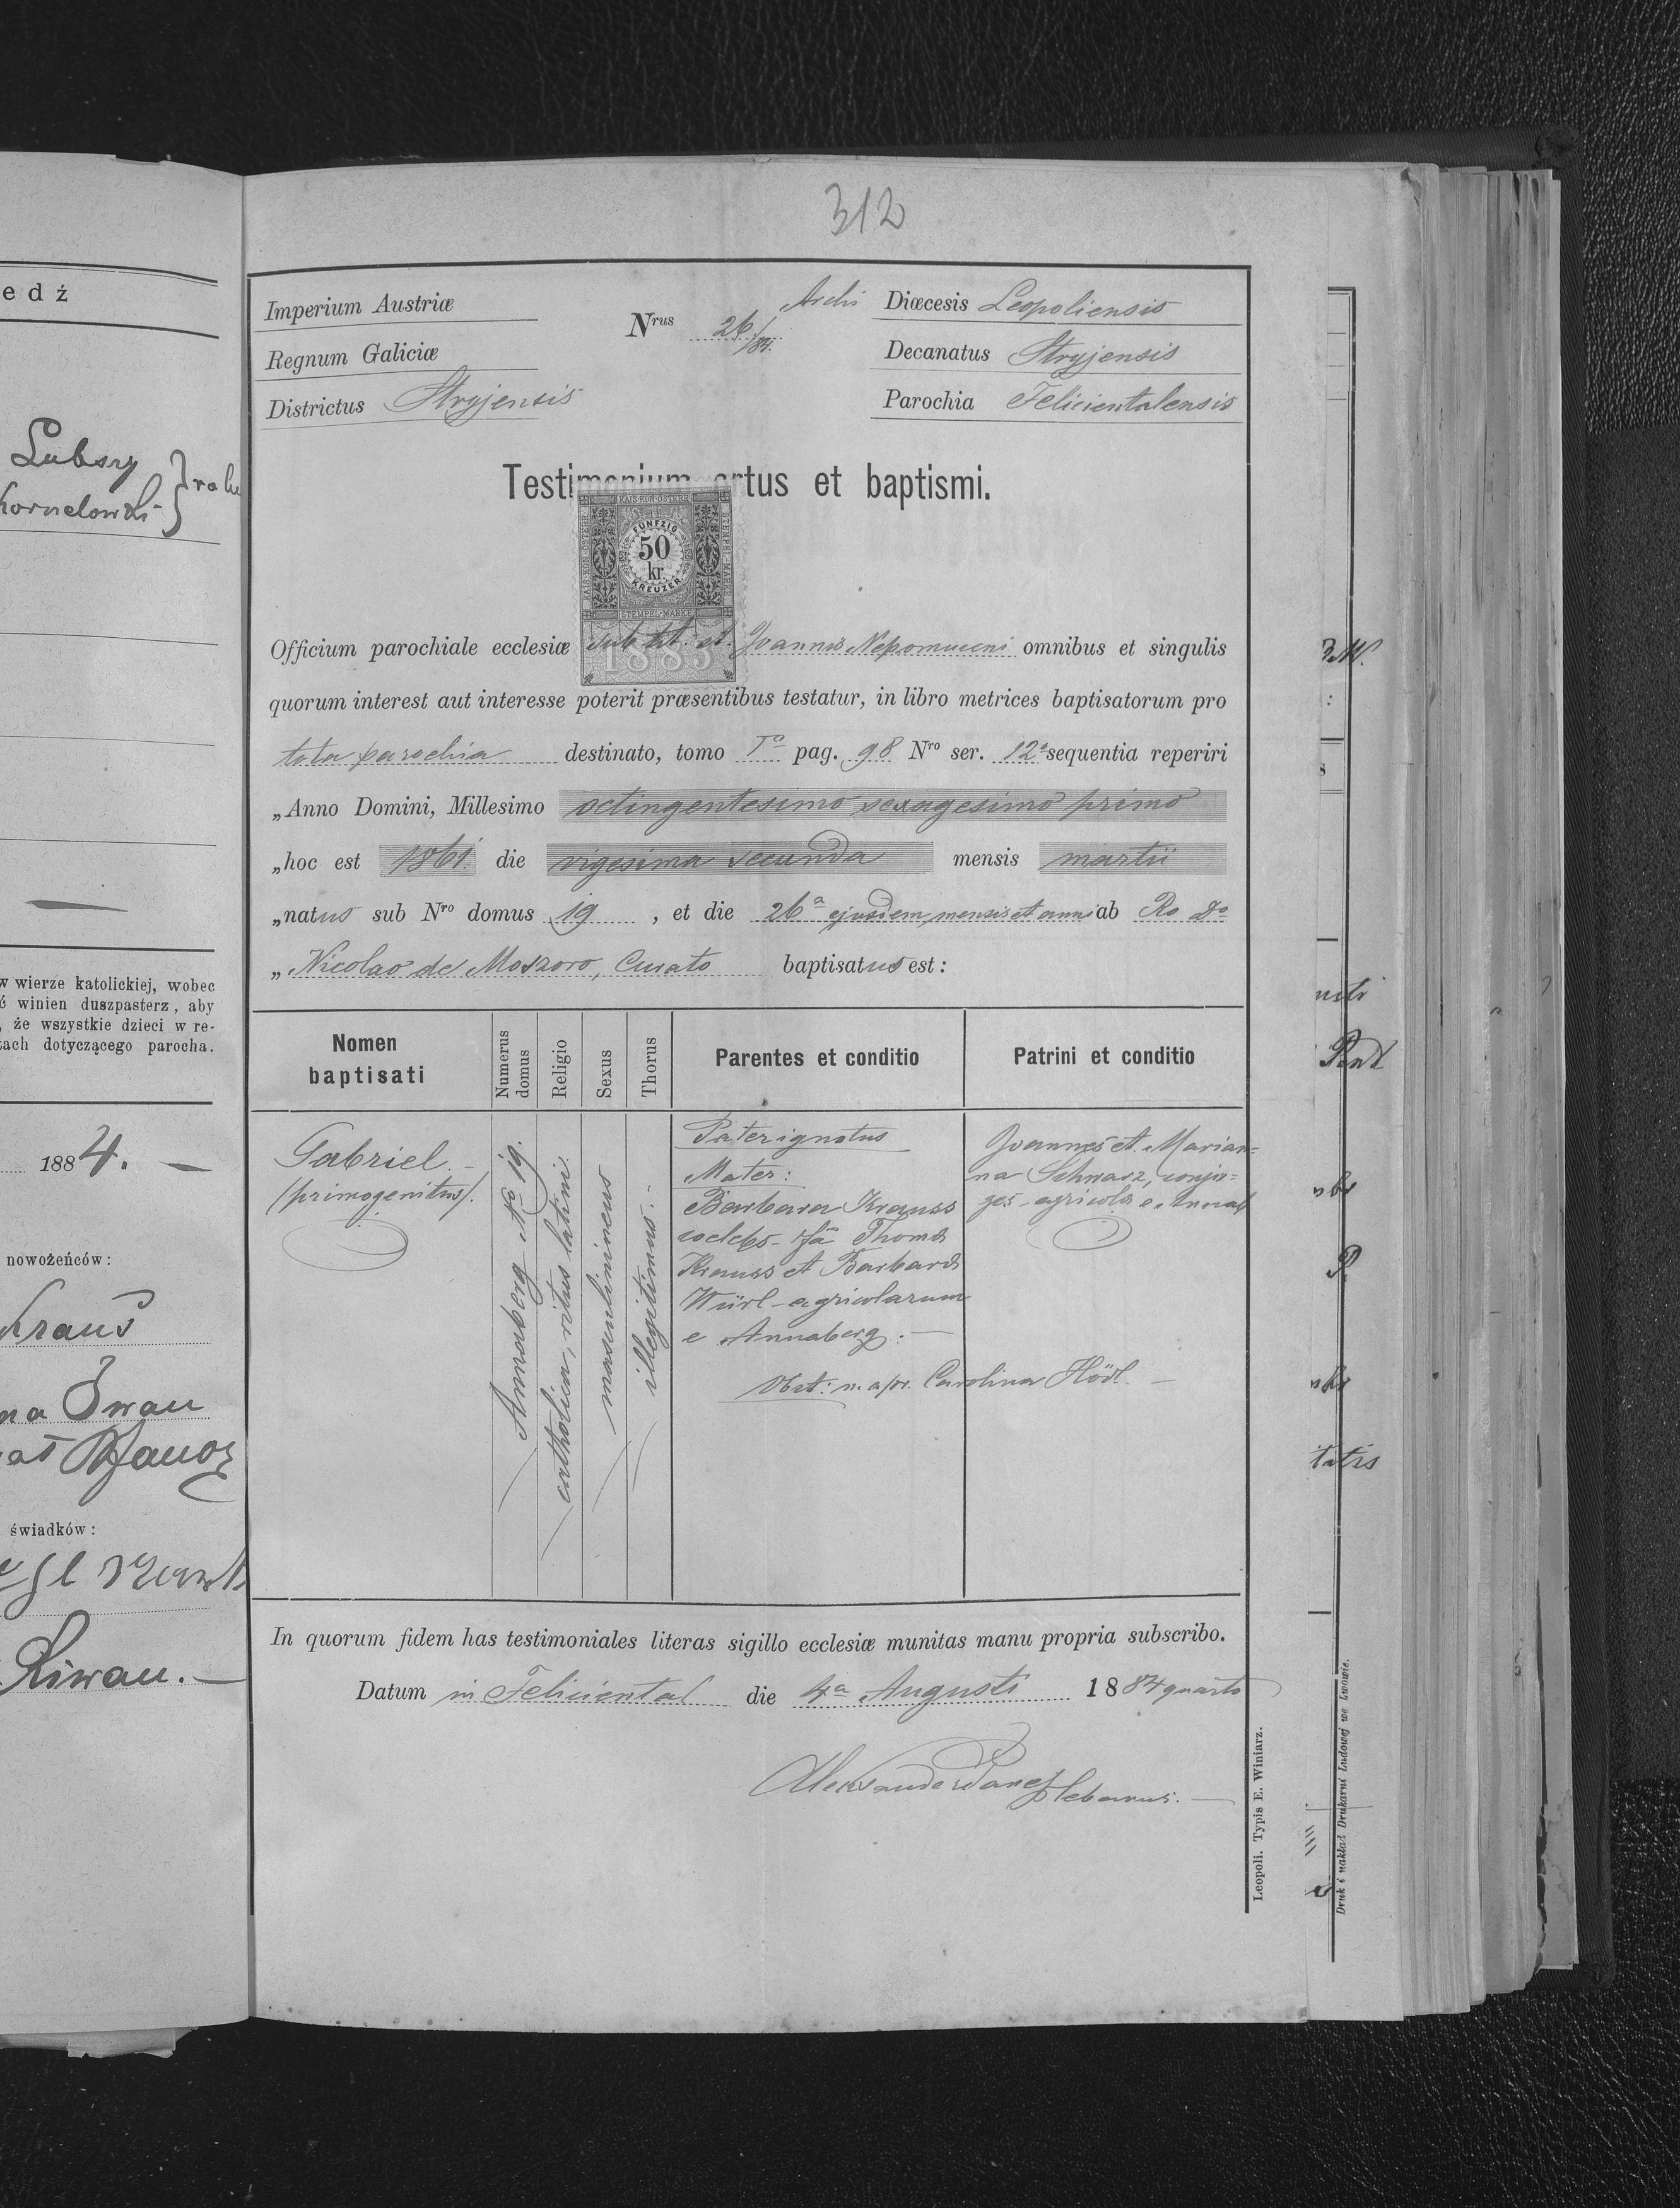 312
edź
Lubszy
roln
wierze katolickiej, wobec
winien duszpasterz, aby
że wszystkie dzieci w re-
tach dotyczącego parocha.
1884. —
nowożeńców:
Kraus
Iwan
świadków:
Imperium Austriæ
Regnum Galiciæ
Districtus Stryjensis
Nrus 26/84.
Archi Diœcesis Leopoliensis
Decanatus Stryjensis
Parochia Felicientalensis
Testimonium ortus et baptismi.
KAIS. KÖN. ÖSTERR.
FÜNFZIG
50
kr.
KREUZER
STEMPEL-MARKE
1883
Officium parochiale ecclesiæ sub tit. st. Joannis Nepomuceni omnibus et singulis
quorum interest aut interesse poterit præsentibus testatur, in libro metrices baptisatorum pro
tota parochia destinato, tomo Io pag. 98 Nro ser. 12a sequentia reperiri
„Anno Domini, Millesimo octingentesimo sexagesimo primo
„hoc est 1861. die vigesima secunda mensis martii
„natus sub Nro domus 19, et die 26a ejusdem mensis et anni ab Ro Do
„Nicolao de Moszoro, Curato baptisatus est:
Nomen baptisati
Numerus domus
Religio
Sexus
Thorus
Parentes et conditio
Patrini et conditio
Gabriel. —
/primogenitus/.
Annaberg No 19.
catholica, ritus latini.
masculinineus
illegitimus. —
Pater ignotus
Mater:
Barbara Krauss
coelebs - fa Thomæ
Krauss et Barbaræ
Würl - agricolarum
e Annaberg. —
Obst: n. apr. Carolina Hödl. —
Joannes et Marian-
na Schwarz, conju-
ges - agricolæ e Annab
In quorum fidem has testimoniales literas sigillo ecclesiæ munitas manu propria subscribo.
Datum in Feliciental die 4a Augusti 1884 quarto
Alexander Plebanus. —
Leopoli. Typis E. Winiarz.
Druk i nakład Drukarni Ludowej we Lwowie.